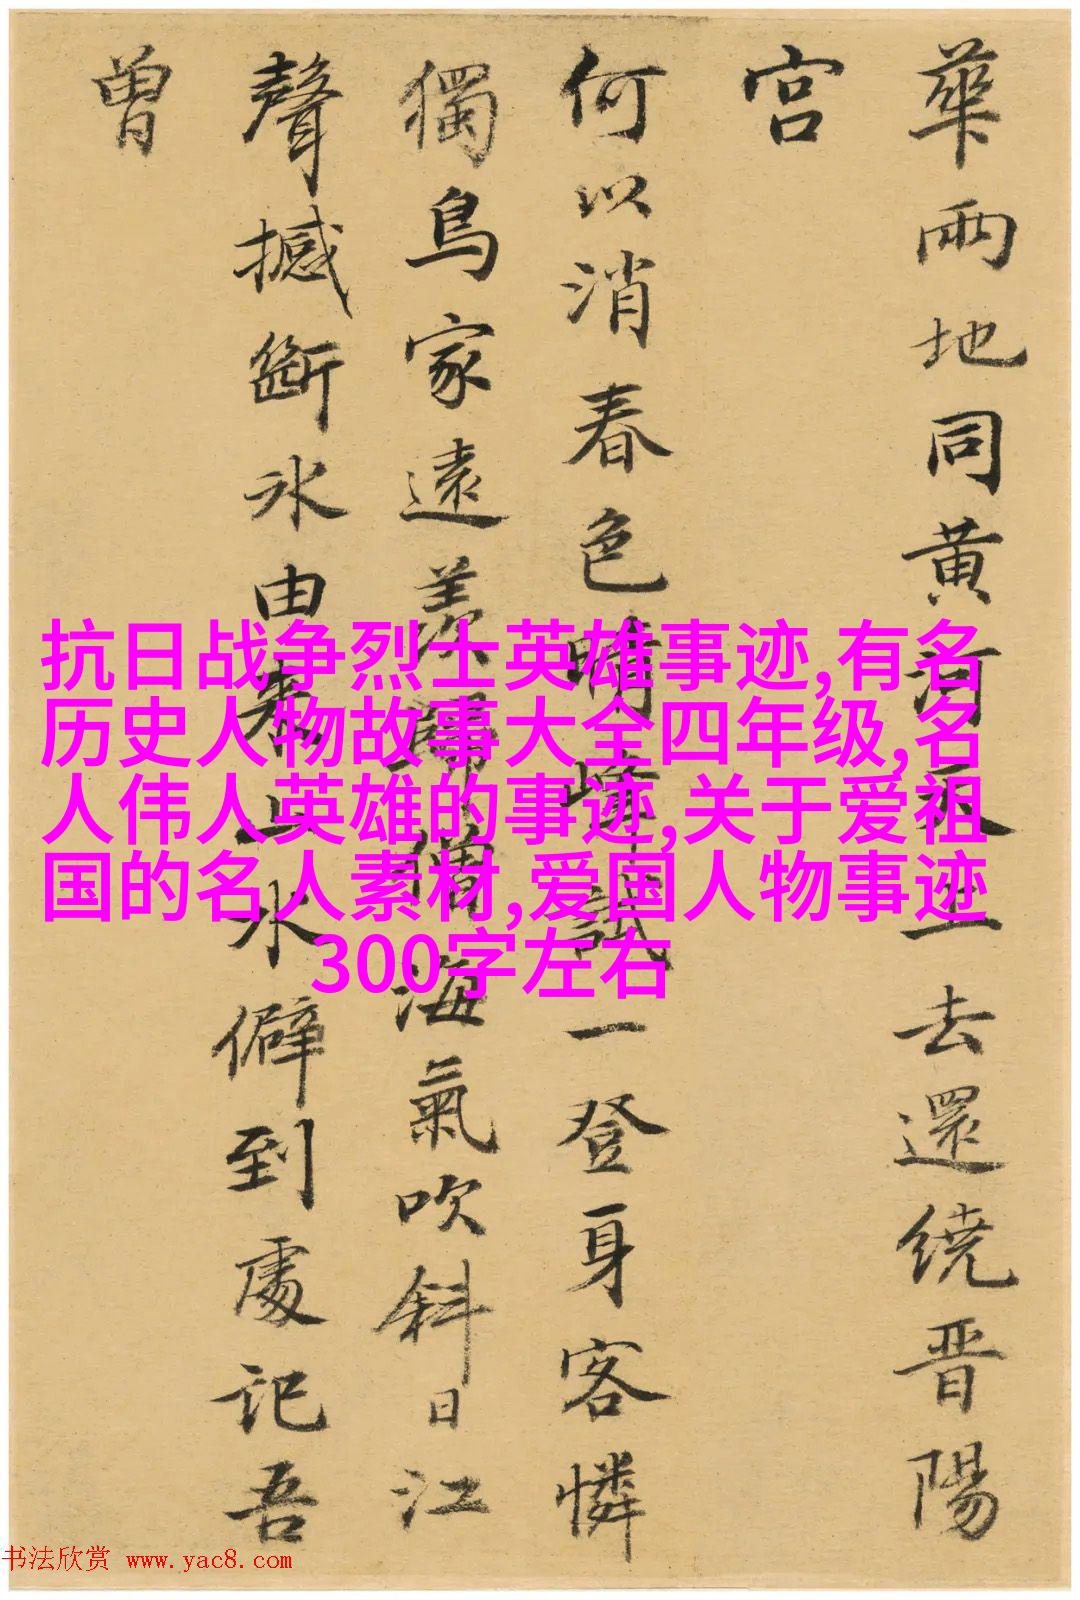 華兩地同黄河天上去還繞晋陽
宫
何以消春色晴峰試一登身客憐
獨鳥家遠羨歸僧海氣吹斜日江
聲撼斷冰由來山水僻到處記吾
曾
抗日战争烈士英雄事迹,有名
历史人物故事大全四年级,名
人伟人英雄的事迹,关于爱祖
国的名人素材,爱国人物事迹
300字左右
书法欣赏 www.yac8.com